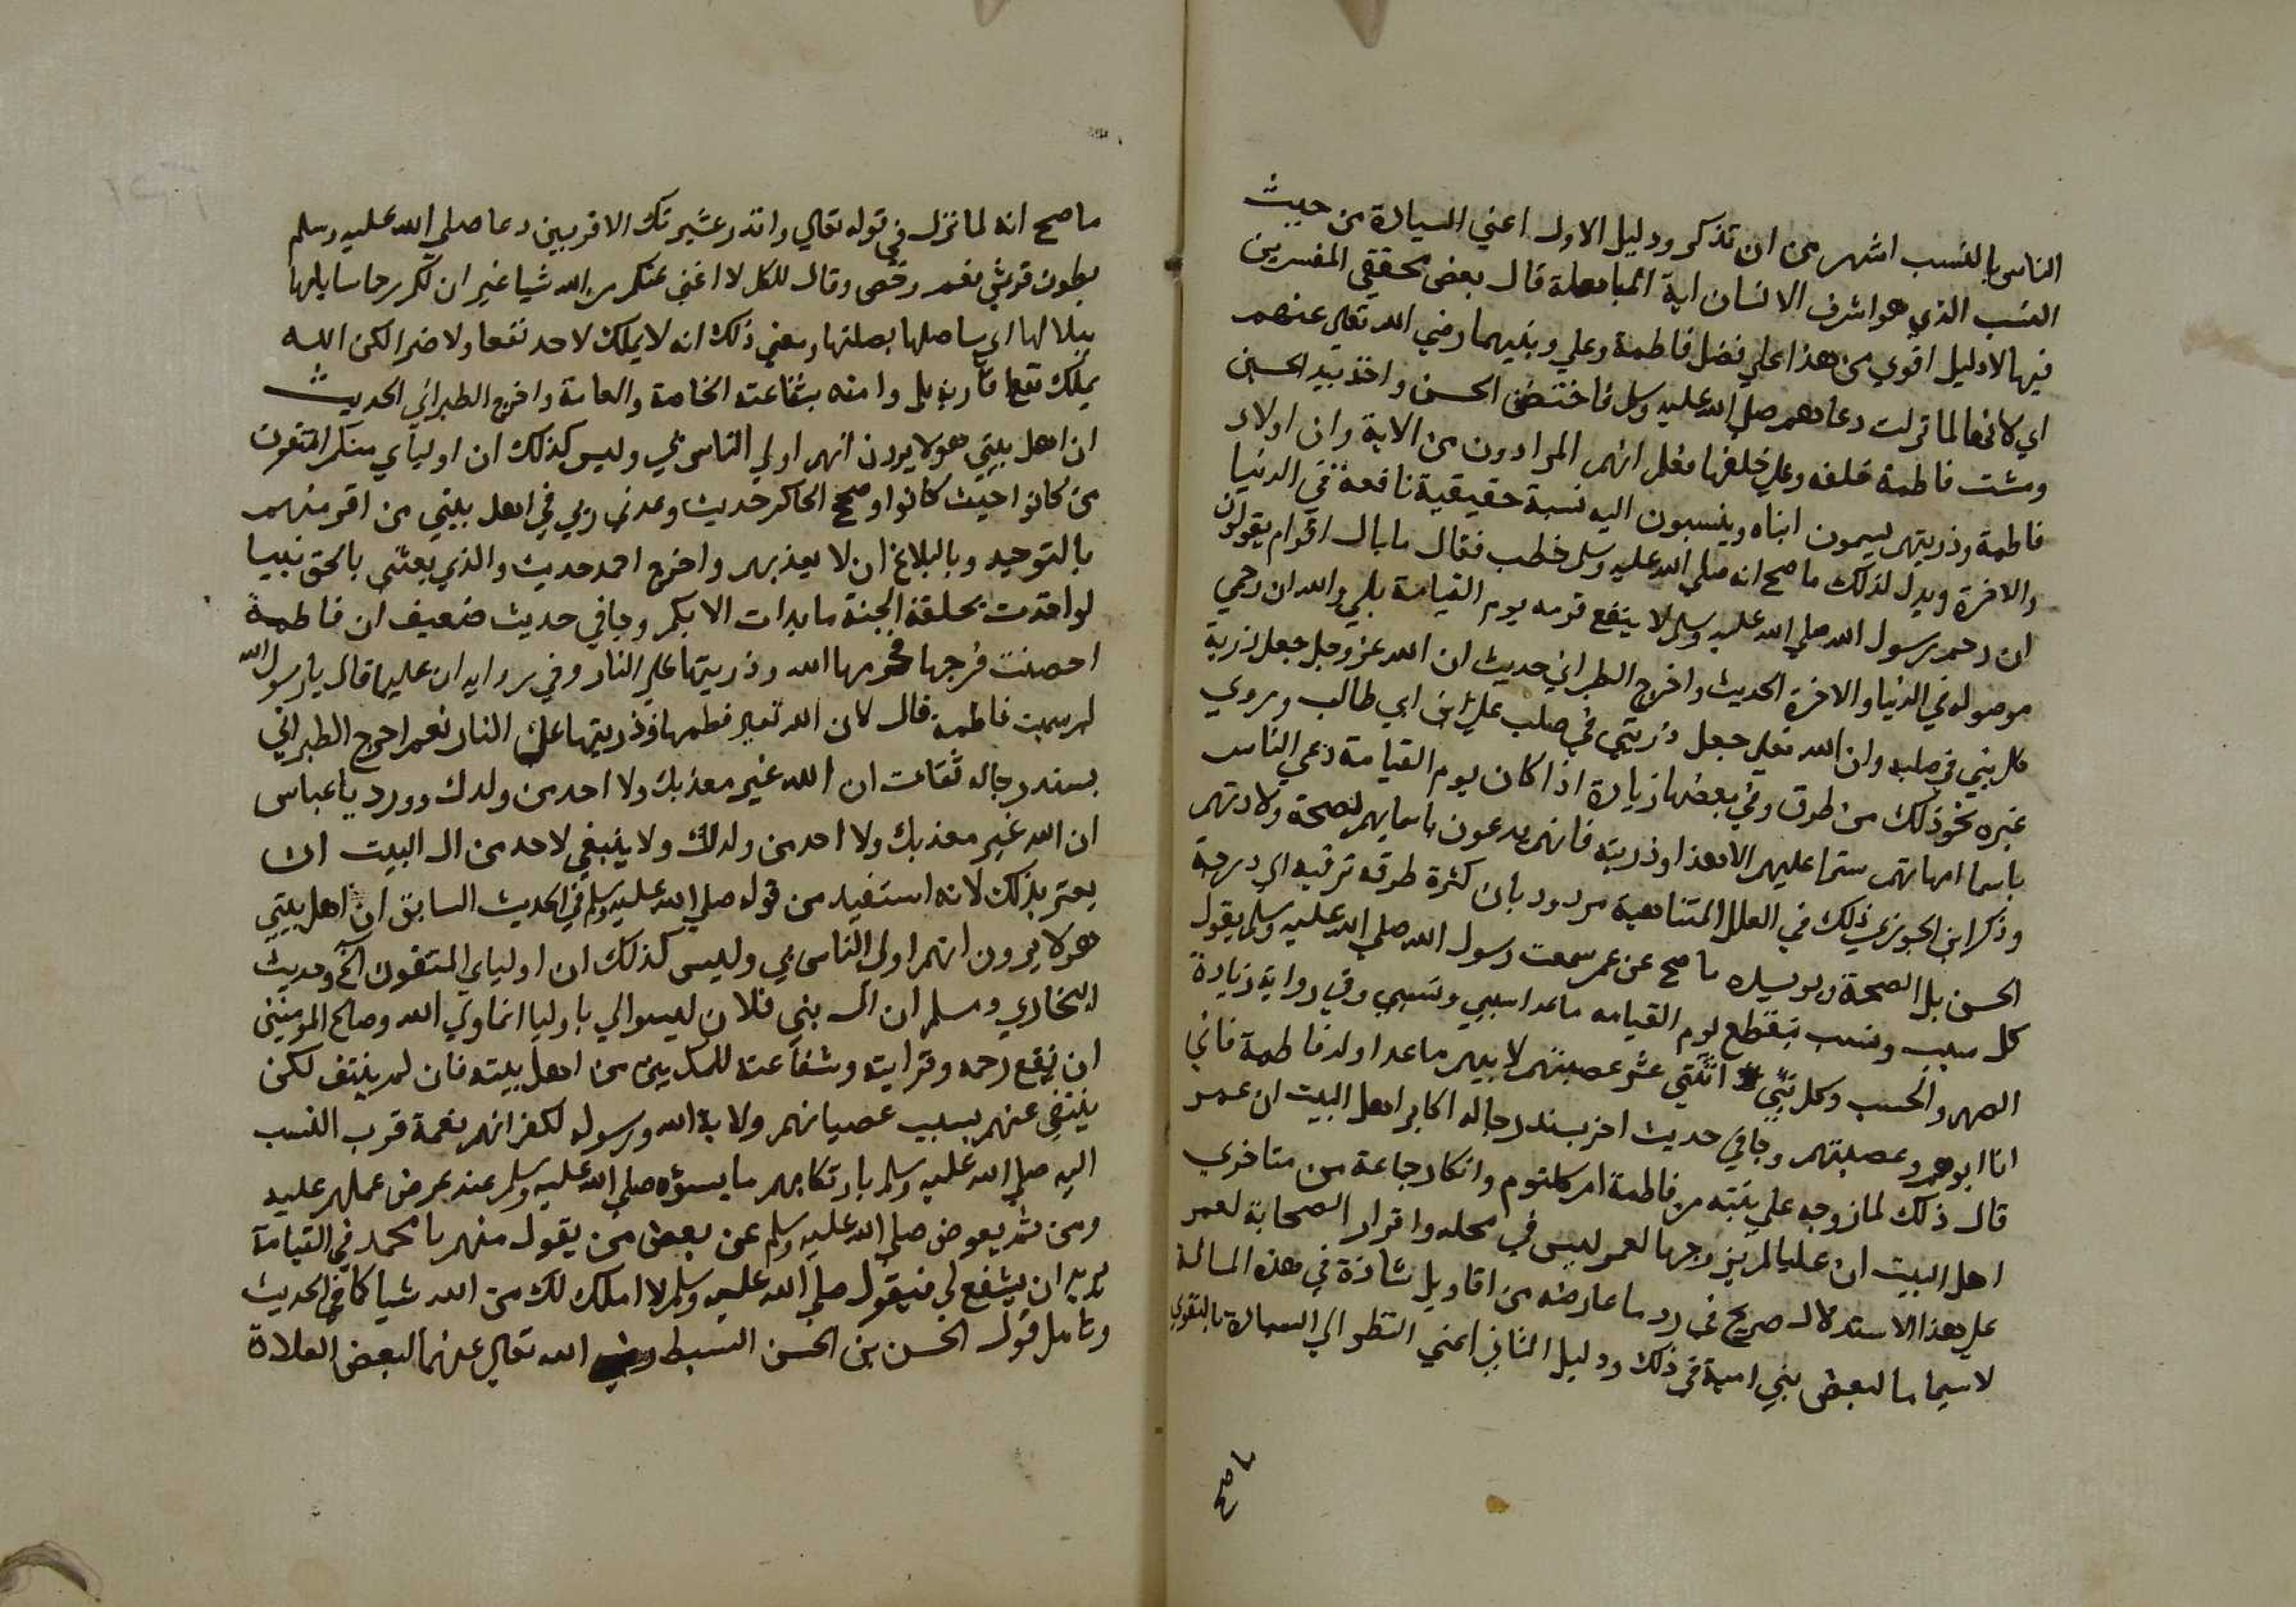 الناس بالنسب اشهر من ان تذكر ودليل الاول اعني السيادة من حيث
النسب الذي هو اشرف الانسان اية المباهلة قال بعض محققي المفسرين
فيها لا دليل اقوي من هذا علي فضل فاطمة وعلي وبنيهما رضي الله تعالي عنهم
اي لانها لما نزلت دعاهم صلي الله عليه وسلم فاحتضن الحسن واخذ بيد الحسين
ومشت فاطمة خلفه وعلي خلفها فعلم انهم المرادون من الاية وان اولاد
فاطمة وذريتهم يسمون ابناه وينسبون اليه نسبة حقيقية نافعة في الدنيا
والاخرة ويدل لذلك ما صح انه صلي الله عليه وسلم خطب فقال ما بال اقوام يقولون
ان رحم رسول الله صلي الله عليه وسلم لا ينفع قومه يوم القيامة بلي والله ان رحمي
موصوله في الدنيا والاخرة الحديث واخرج الطبراني حديث ان الله عز وجل جعل ذرية
كل نبي في صلبه وان الله تعالي جعل ذريتي في صلب علي ابن ابي طالب وروي
غيره نحو ذلك من طرق وفي بعضها زيادة اذا كان يوم القيامة دعي الناس
باسما امهاتهم سترا عليهم الا هذا وذريته فانهم يدعون باسمايهم لصحة ولادتهم
وذكر ابن الجوزي ذلك في العلل المتناهية مردود بان كثرة طرقه ترقيه الي درجة
الحسن بل الصحة ويويده ما صح عن عمر سمعت رسول الله صلي الله عليه وسلم يقول
كل سبب ونسب ينقطع يوم القيامه ما عدا سببي ونسبي وفي رواية زيادة
الصهر والحسب وكل بني انثي عصبتهم لابيهم ما عدا ولد فاطمة فاني
انا ابوهم وعصبتهم وجا في حديث اخر بسند رجاله اكابر اهل البيت ان عمر
قال ذلك لما زوجه علي بنته من فاطمة ام كلثوم وانكار جماعة من متاخري
اهل البيت ان عليا لم يزوجها لعمر ليس في محله واقرار الصحابة لعمر
علي هذا الاستدلال صريح في رد ما عارضه من اقاويل شاذة في هذه المسالة
لاسيما ما لبعض بني امية في ذلك ودليل الثاني اعني النظر الي السيادة بالتقوي
ما صح
ما صح انه لما نزل في قوله تعالي وانذر عشيرتك الاقربين دعا صلي الله عليه وسلم
بطون قريش فعم وخص وقال للكل لا اغني عنكم من الله شيا غير ان لكم رحما سابلها
ببلالها اي ساصلها بصلتها ومعني ذلك انه لا يملك لاحد نفعا ولا ضرا لكن الله
يملك نفع اقاربه بل وامته بشفاعته الخاصة والعامة واخرج الطبراني الحديث
ان اهل بيتي هولا يرون انهم اولي الناس بي وليس كذلك ان اوليآي منكم المتقون
من كانوا حيث كانوا وصحح الحاكم حديث وعدني ربي في اهل بيتي من اقر منهم
بالتوحيد وبالبلاغ ان لا يعذبهم واخرج احمد حديث والذي بعثني بالحق نبيا
لو اخذت بحلقة الجنة ما بدات الا بكم وجا في حديث ضعيف ان فاطمة
احصنت فرجها فحرمها الله وذريتها علي النار وفي روايه ان عليا قال يا رسول الله
لم سميت فاطمة قال لان الله تعالي فطمها وذريتها عن النار نعم اخرج الطبراني
بسند رجاله ثقات ان الله غير معذبك ولا احد من ولدك وورد يا عباس
ان الله غير معذبك ولا احد من ولدك ولا ينبغي لاحد من ال البيت ان
يغتر بذلك لانه استفيد من قوله صلي الله عليه وسلم في الحديث السابق ان اهل بيتي
هولا يرون انهم اولي الناس بي وليس كذلك ان اولياي المتقون الخ وحديث
البخاري ومسلم ان ال بني فلان ليسوا لي باوليا انما وليي الله وصالح المومنين
ان نفع رحمه وقرابته وشفاعته للمذنبين من اهل بيته فان لم ينتف لكن
ينتفي عنهم بسبب عصيانهم ولاية الله ورسوله لكفرانهم نعمة قرب النسب
اليه صلي الله عليه وسلم بارتكابهم ما يسؤه صلي الله عليه وسلم عند عرض عملهم عليه
ومن ثم يعرض صلي الله عليه وسلم عن بعض من يقول منهم يا محمد في القيامة
يريد ان يشفع لي فيقول صلي الله عليه وسلم لا املك لك من الله شيا كما في الحديث
وتامل قول الحسن بن الحسن السبط رضي الله تعالي عنهما لبعض الغلاة